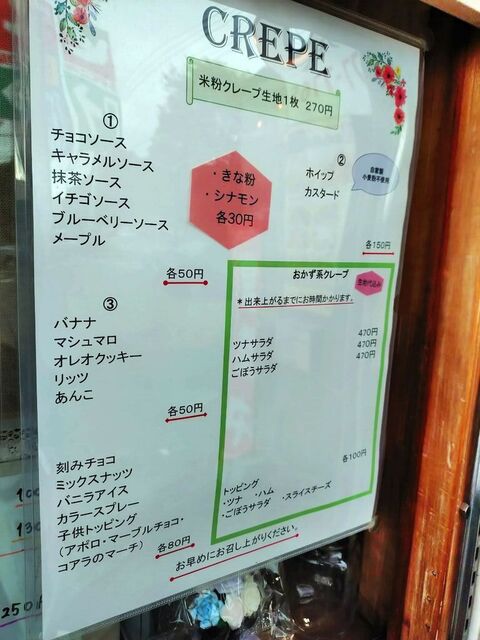 CREPE
米粉クレープ生地1枚 270円
①
チョコソース
キャラメルソース
抹茶ソース
イチゴソース
ブルーベリーソース
メープル
各50円
・きな粉
・シナモン
各30円
②
ホイップ
カスタード
自家製
小麦粉不使用
各150円
③
バナナ
マシュマロ
オレオクッキー
リッツ
あんこ
各50円
刻みチョコ
ミックスナッツ
バニラアイス
カラースプレー
子供トッピング
(アポロ・マーブルチョコ・
コアラのマーチ)
各80円
おかず系クレープ
生地代込み
*出来上がるまでにお時間かかります。
ツナサラダ 470円
ハムサラダ 470円
ごぼうサラダ 470円
各100円
トッピング
・ツナ ・ハム ・スライスチーズ
・ごぼうサラダ
お早めにお召し上がりください。